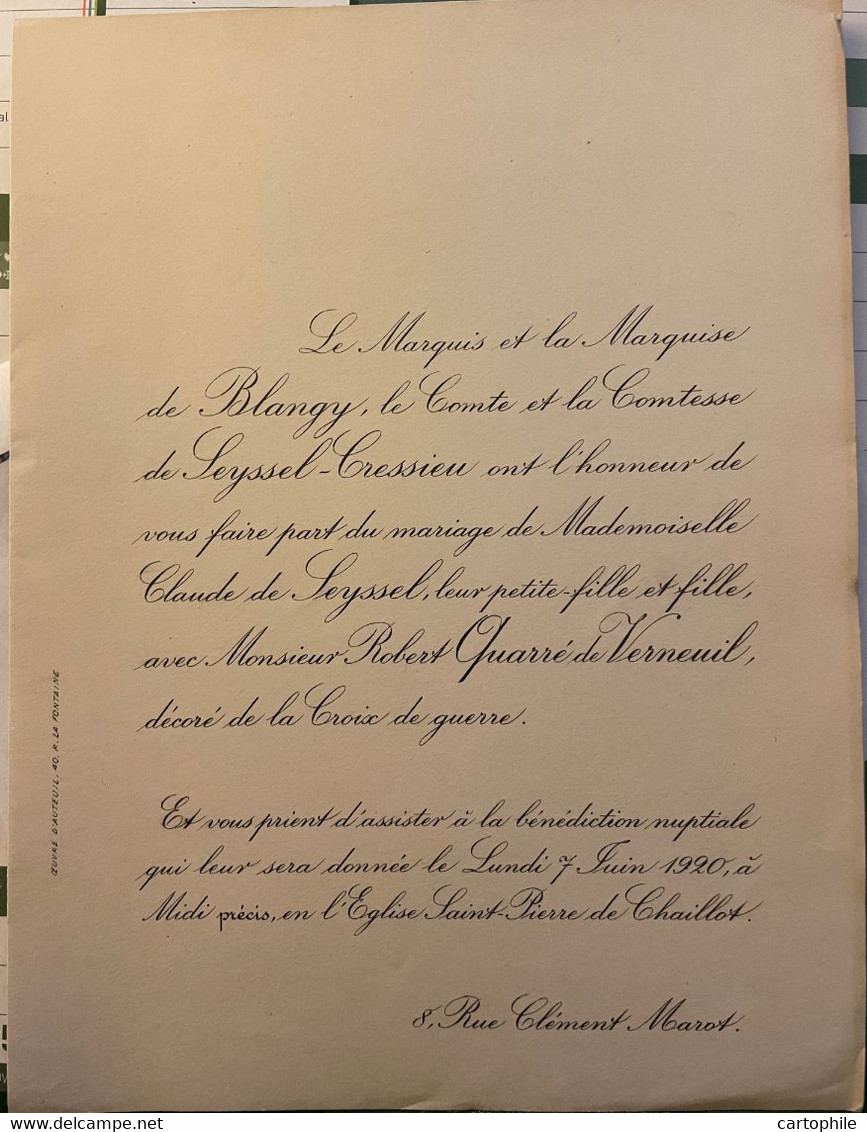 Le Marquis et la Marquise
de Blangy, le Comte et la Comtesse
de Seyssel-Cressieu ont l'honneur de
vous faire part du mariage de Mademoiselle
Claude de Seyssel, leur petite-fille et fille,
avec Monsieur Robert Quarré de Verneuil,
décoré de la Croix de guerre.
Et vous prient d'assister à la bénédiction nuptiale
qui leur sera donnée le Lundi 7 Juin 1920, à
Midi précis, en l'Eglise Saint-Pierre de Chaillot.
8, Rue Clément Marot.
ŒUVRE D'AUTEUIL, 40, R. LA FONTAINE
al
cartophile